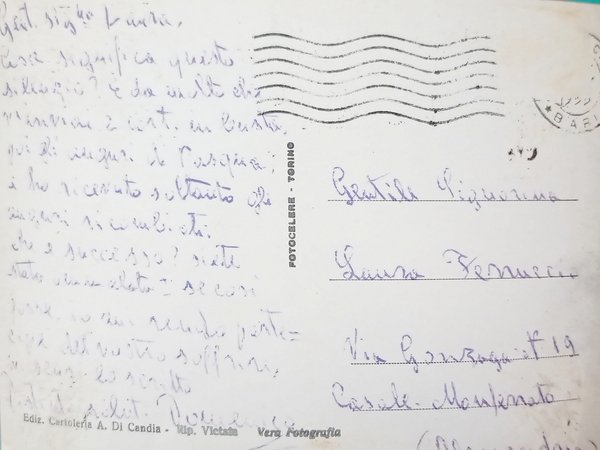 Gent. sig.na Laura.
Cosa significa questo
silenzio? è da molto che
cart. in busta
poi gli auguri di Pasqua,
e ho ricevuto soltanto gli
auguri ricambiati.
che è successo? siete
stata ammalata = se così
fosse, io mi rendo parte=
cipe del vostro soffrire,
lo scritto
salut.
BARI
FOTOCELERE - TORINO
Gentile Signorina
Laura Ferrucci
Via Gonzaga n° 19
Casale-Monferrato
(Alessandria)
Ediz. Cartoleria A. Di Candia - Rip. Vietata Vera Fotografia